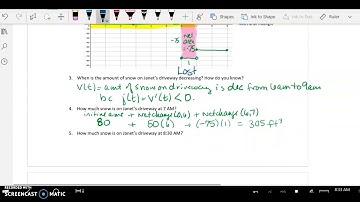 -75
net
area
= -75
1
Lost
3. When is the amount of snow on Janet's driveway decreasing? How do you know?
V(t) = amt of snow on driveway is dec from 6am to 9am
bc j(t) = V'(t) < 0.
4. How much snow is on Janet's driveway at 7 AM?
initial amt + Net change (0,6) + Net change (6,7)
80 + 50(6) + (-75)(1) = 305 ft³
5. How much snow is on Janet's driveway at 8:30 AM?
RECORDED WITH
SCREENCAST MATIC
8:33 AM